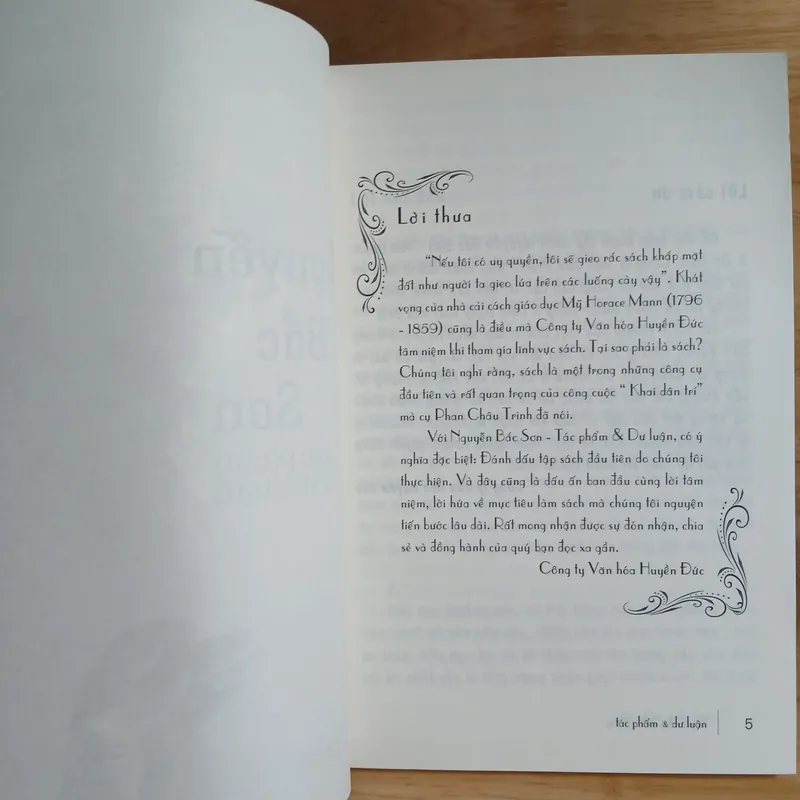 Lời thưa
"Nếu tôi có uy quyền, tôi sẽ gieo rắc sách khắp mặt
đất như người ta gieo lúa trên các luống cày vậy". Khát
vọng của nhà cải cách giáo dục Mỹ Horace Mann (1796
- 1859) cũng là điều mà Công ty Văn hóa Huyền Đức
tâm niệm khi tham gia lĩnh vực sách. Tại sao phải là sách?
Chúng tôi nghĩ rằng, sách là một trong những công cụ
đầu tiên và rất quan trọng của công cuộc " Khai dân trí"
mà cụ Phan Châu Trinh đã nói.
Với Nguyễn Bắc Sơn - Tác phẩm & Dư luận, có ý
nghĩa đặc biệt: Đánh dấu tập sách đầu tiên do chúng tôi
thực hiện. Và đây cũng là dấu ấn ban đầu cùng lời tâm
niệm, lời hứa về mục tiêu làm sách mà chúng tôi nguyện
tiến bước lâu dài. Rất mong nhận được sự đón nhận, chia
sẻ và đồng hành của quý bạn đọc xa gần.
Công ty Văn hóa Huyền Đức
tác phẩm & dư luận 5